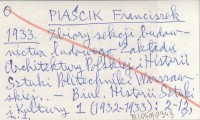 PIAŚCIK Franciszek
1933. Zbiory sekcji budow-
nictwa ludowego Zakładu
Architektury Polskiej i Historii
Sztuki Politechniki Warszaw-
skiej. – Biul. Historii Sztuki
i Kultury 1 (1932-1933): 2-13